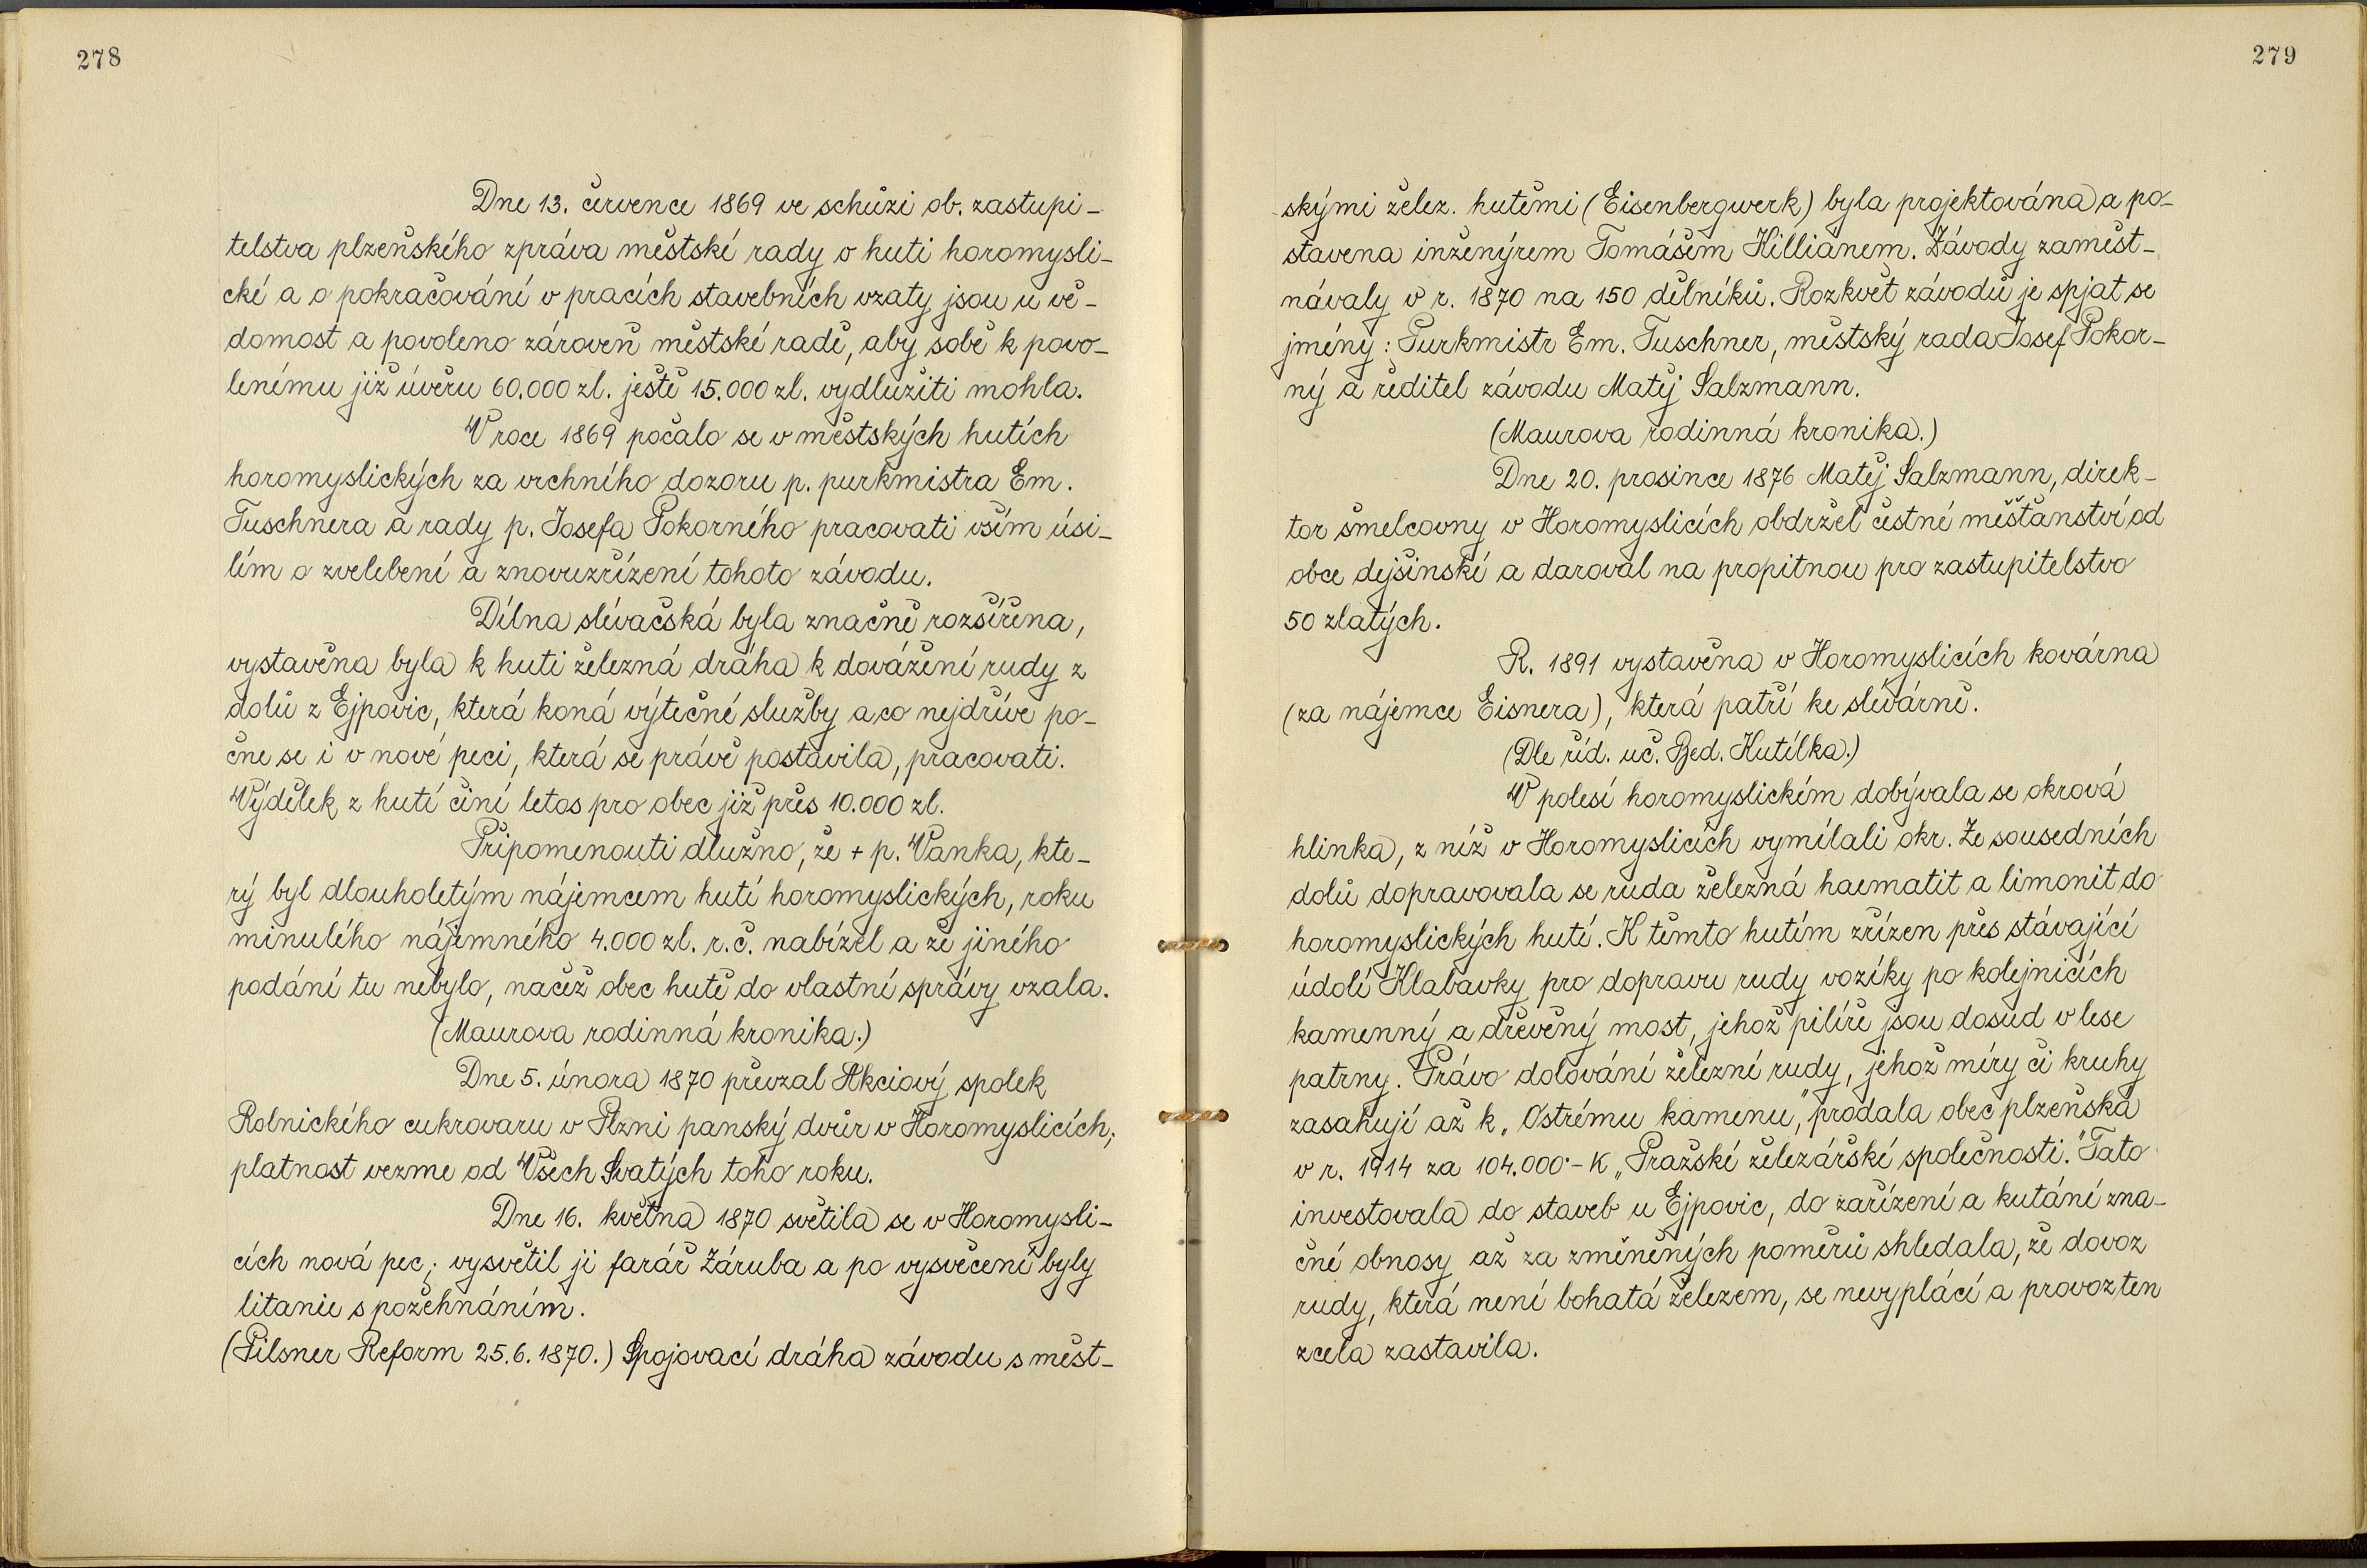 278
Dne 13. července 1869 ve schůzi ob. zastupi-
telstva plzeňského zpráva městské rady o huti horomysli-
cké a o pokračování v pracích stavebních vzaty jsou u vě-
domost a povoleno zároveň městské radě, aby sobě k povo-
lenému již úvěru 60.000 zl. ještě 15.000 zl. vydlužiti mohla.
V roce 1869 počalo se v městských hutích
horomyslických za vrchního dozoru p. purkmistra Em.
Tuschnera a rady p. Josefa Pokorného pracovati vším úsi-
lím o zvelebení a znovuzřízení tohoto závodu.
Dílna slévačská byla značně rozšířena,
vystavěna byla k huti železná dráha k dovážení rudy z
dolů z Ejpovic, která koná výtečné služby a co nejdříve po-
čne se i v nové peci, která se právě postavila, pracovati.
Výdělek z hutí činí letos pro obec již přes 10.000 zl.
Připomenouti dlužno, že + p. Vanka, kte-
rý byl dlouholetým nájemcem hutí horomyslických, roku
minulého nájemného 4.000 zl. r. č. nabízel a že jiného
podání tu nebylo, načež obec hutě do vlastní správy vzala.
(Maurova rodinná kronika.)
Dne 5. února 1870 převzal Akciový spolek
Rolnického cukrovaru v Plzni panský dvůr v Horomyslicích;
platnost vezme od Všech Svatých toho roku.
Dne 16. května 1870 světila se v Horomysli-
cích nová pec; vysvětil ji farář Záruba a po vysvěcení byly
litanie s požehnáním.
(Pilsner Reform 25.6.1870.) Spojovací dráha závodu s měst-
279
skými želez. hutěmi (Eisenbergwerk) byla projektována a po-
stavena inženýrem Tomášem Killianem. Závody zaměst-
návaly v r. 1870 na 150 dělníků. Rozkvět závodů je spjat se
jmény: Purkmistr Em. Tuschner, městský rada Josef Pokor-
ný a ředitel závodu Matěj Salzmann.
(Maurova rodinná kronika.)
Dne 20. prosince 1876 Matěj Salzmann, direk-
tor šmelcovny v Horomyslicích obdržel čestné měšťanství od
obce dejšinské a daroval na propitnou pro zastupitelstvo
50 zlatých.
R. 1891 vystavěna v Horomyslicích kovárna
(za nájemce Eisnera), která patří ke slévárně.
(Dle říd. uč. Bed. Kutílka.)
V polesí horomyslickém dobývala se okrová
hlinka, z níž v Horomyslicích vymílali okr. Ze sousedních
dolů dopravovala se ruda železná haematit a limonit do
horomyslických hutí. K těmto hutím zřízen přes stávající
údolí Klabavky pro dopravu rudy vozíky po kolejnicích
kamenný a dřevěný most, jehož pilíře jsou dosud v lese
patrny. Právo dolování železné rudy, jehož míry či kruhy
zasahují až k „Ostrému kamenu," prodala obec plzeňská
v r. 1914 za 104.000·- K „Pražské železářské společnosti." Tato
investovala do staveb u Ejpovic, do zařízení a kutání zna-
čné obnosy až za změněných poměrů shledala, že dovoz
rudy, která není bohatá železem, se nevyplácí a provoz ten
zcela zastavila.